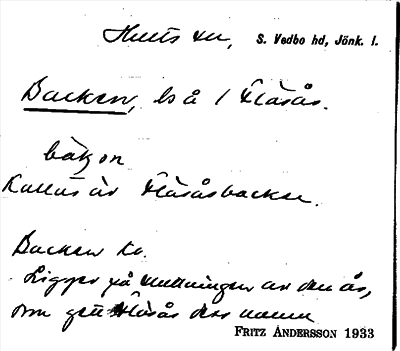 Hults sn, S. Vedbo hd, Jönk. l.
Backen, ls å 1 Flåsås.
bàk̡ən
Kallas äv Flåsåsbacken.
Backen to.
Ligger på sluttningen av den ås,
som gett Flåsås dess namn
FRITZ ANDERSSON 1933